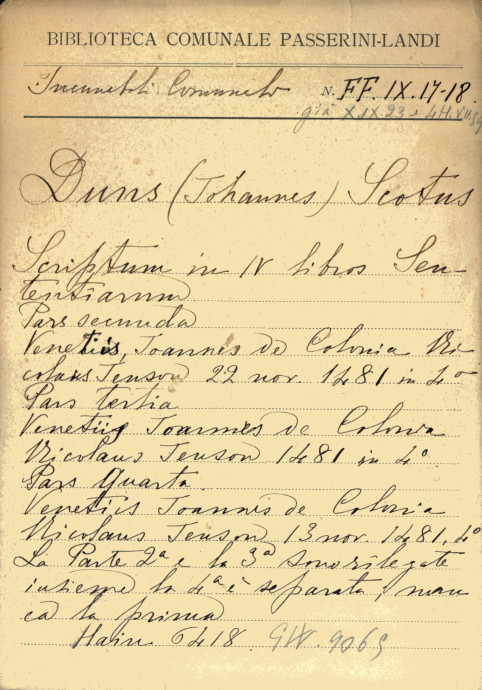 BIBLIOTECA COMUNALE PASSERINI-LANDI
Incunaboli Comunelo N. FF. IX. 17-18.
già X. IX. 23 e 4H. VII.
Duns (Johannes) Scotus
Scriptum in IV libros Sen-
tentiarum
Pars secunda
Venetiis, Joannes de Colonia Ni
colaus Jenson 22 nov. 1481 in 4o
Pars tertia
Venetiis Joannes de Colonia
Nicolaus Jenson 1481 in 4o
Pars Quarta
Venetiis Joannis de Colonia
Nicolaus Jenson 13 nov. 1481. 4o
La Parte 2a e la 3a sono rilegate
insieme la 4a è separata, man
ca la prima
Hain 6418 GW. 9069